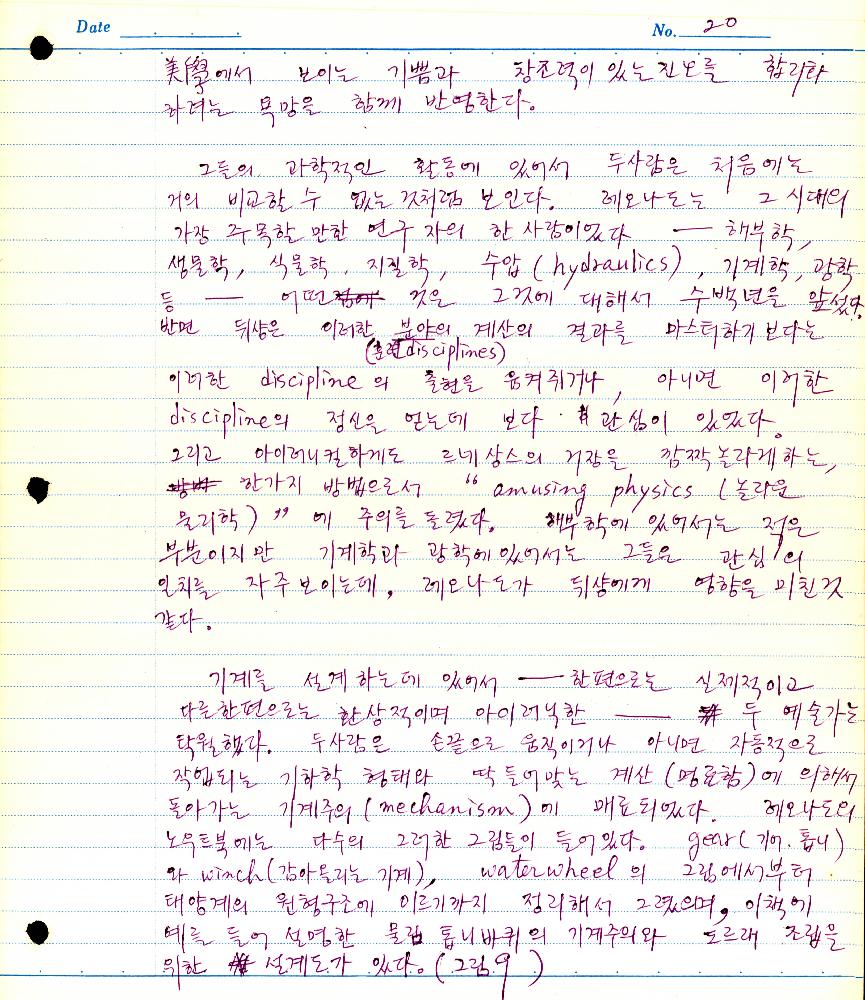 Date
No. 20
美學에서 보이는 기쁨과 창조력이 있는 진보를 합리화
하려는 욕망을 함께 반영한다.
그들의 과학적인 활동에 있어서 두사람은 처음에는
거의 비교할 수 없는 것처럼 보인다. 레오나도는 그 시대의
가장 주목할 만한 연구 자의 한 사람이었다 — 해부학,
생물학, 식물학, 지질학, 수압 (hydraulics), 기계학, 광학
등 — 어떤 것은 그것에 대해서 수백년을 앞섰다.
반면 뒤샹은 이러한 분야의 계산의 결과를 마스터하기 보다는
disciplines)
이러한 discipline의 출현을 움켜쥐거나, 아니면 이러한
discipline의 정신을 얻는데 보다 관심이 있었다.
그리고 아이러니컬하게도 르네상스의 거장을 깜짝놀라게하는,
한가지 방법으로서 “amusing physics (놀라운
물리학)”에 주의를 돌렸다. 해부학에 있어서는 적은
부분이지만 기계학과 광학에있어서는 그들은 관심의
일치를 자주 보이는데, 레오나도가 뒤샹에게 영향을 미친것
같다.
기계를 설계하는데 있어서 — 한편으로는 실제적이고
다른한편으로는 환상적이며 아이러닉한 — 두 예술가는
탁월했다. 두사람은 손끝으로 움직이거나 아니면 자동적으로
작업되는 기하학 형태와 딱들어맞는 계산(명료함)에 의해서
돌아가는 기계주의(mechanism)에 매료되었다. 레오나도의
노우트북에는 다수의 그러한 그림들이 들어있다. gear(기어.톱니)
와 winch(감아올리는 기계), waterwheel의 그림에서부터
태양계의 원형구조에 이르기까지 정리해서 그렸으며, 이책에
예를 들어 설명한 물림 톱니바퀴의 기계주의와 도르래 조립을
위한 설계도가 있다. (그림.9)